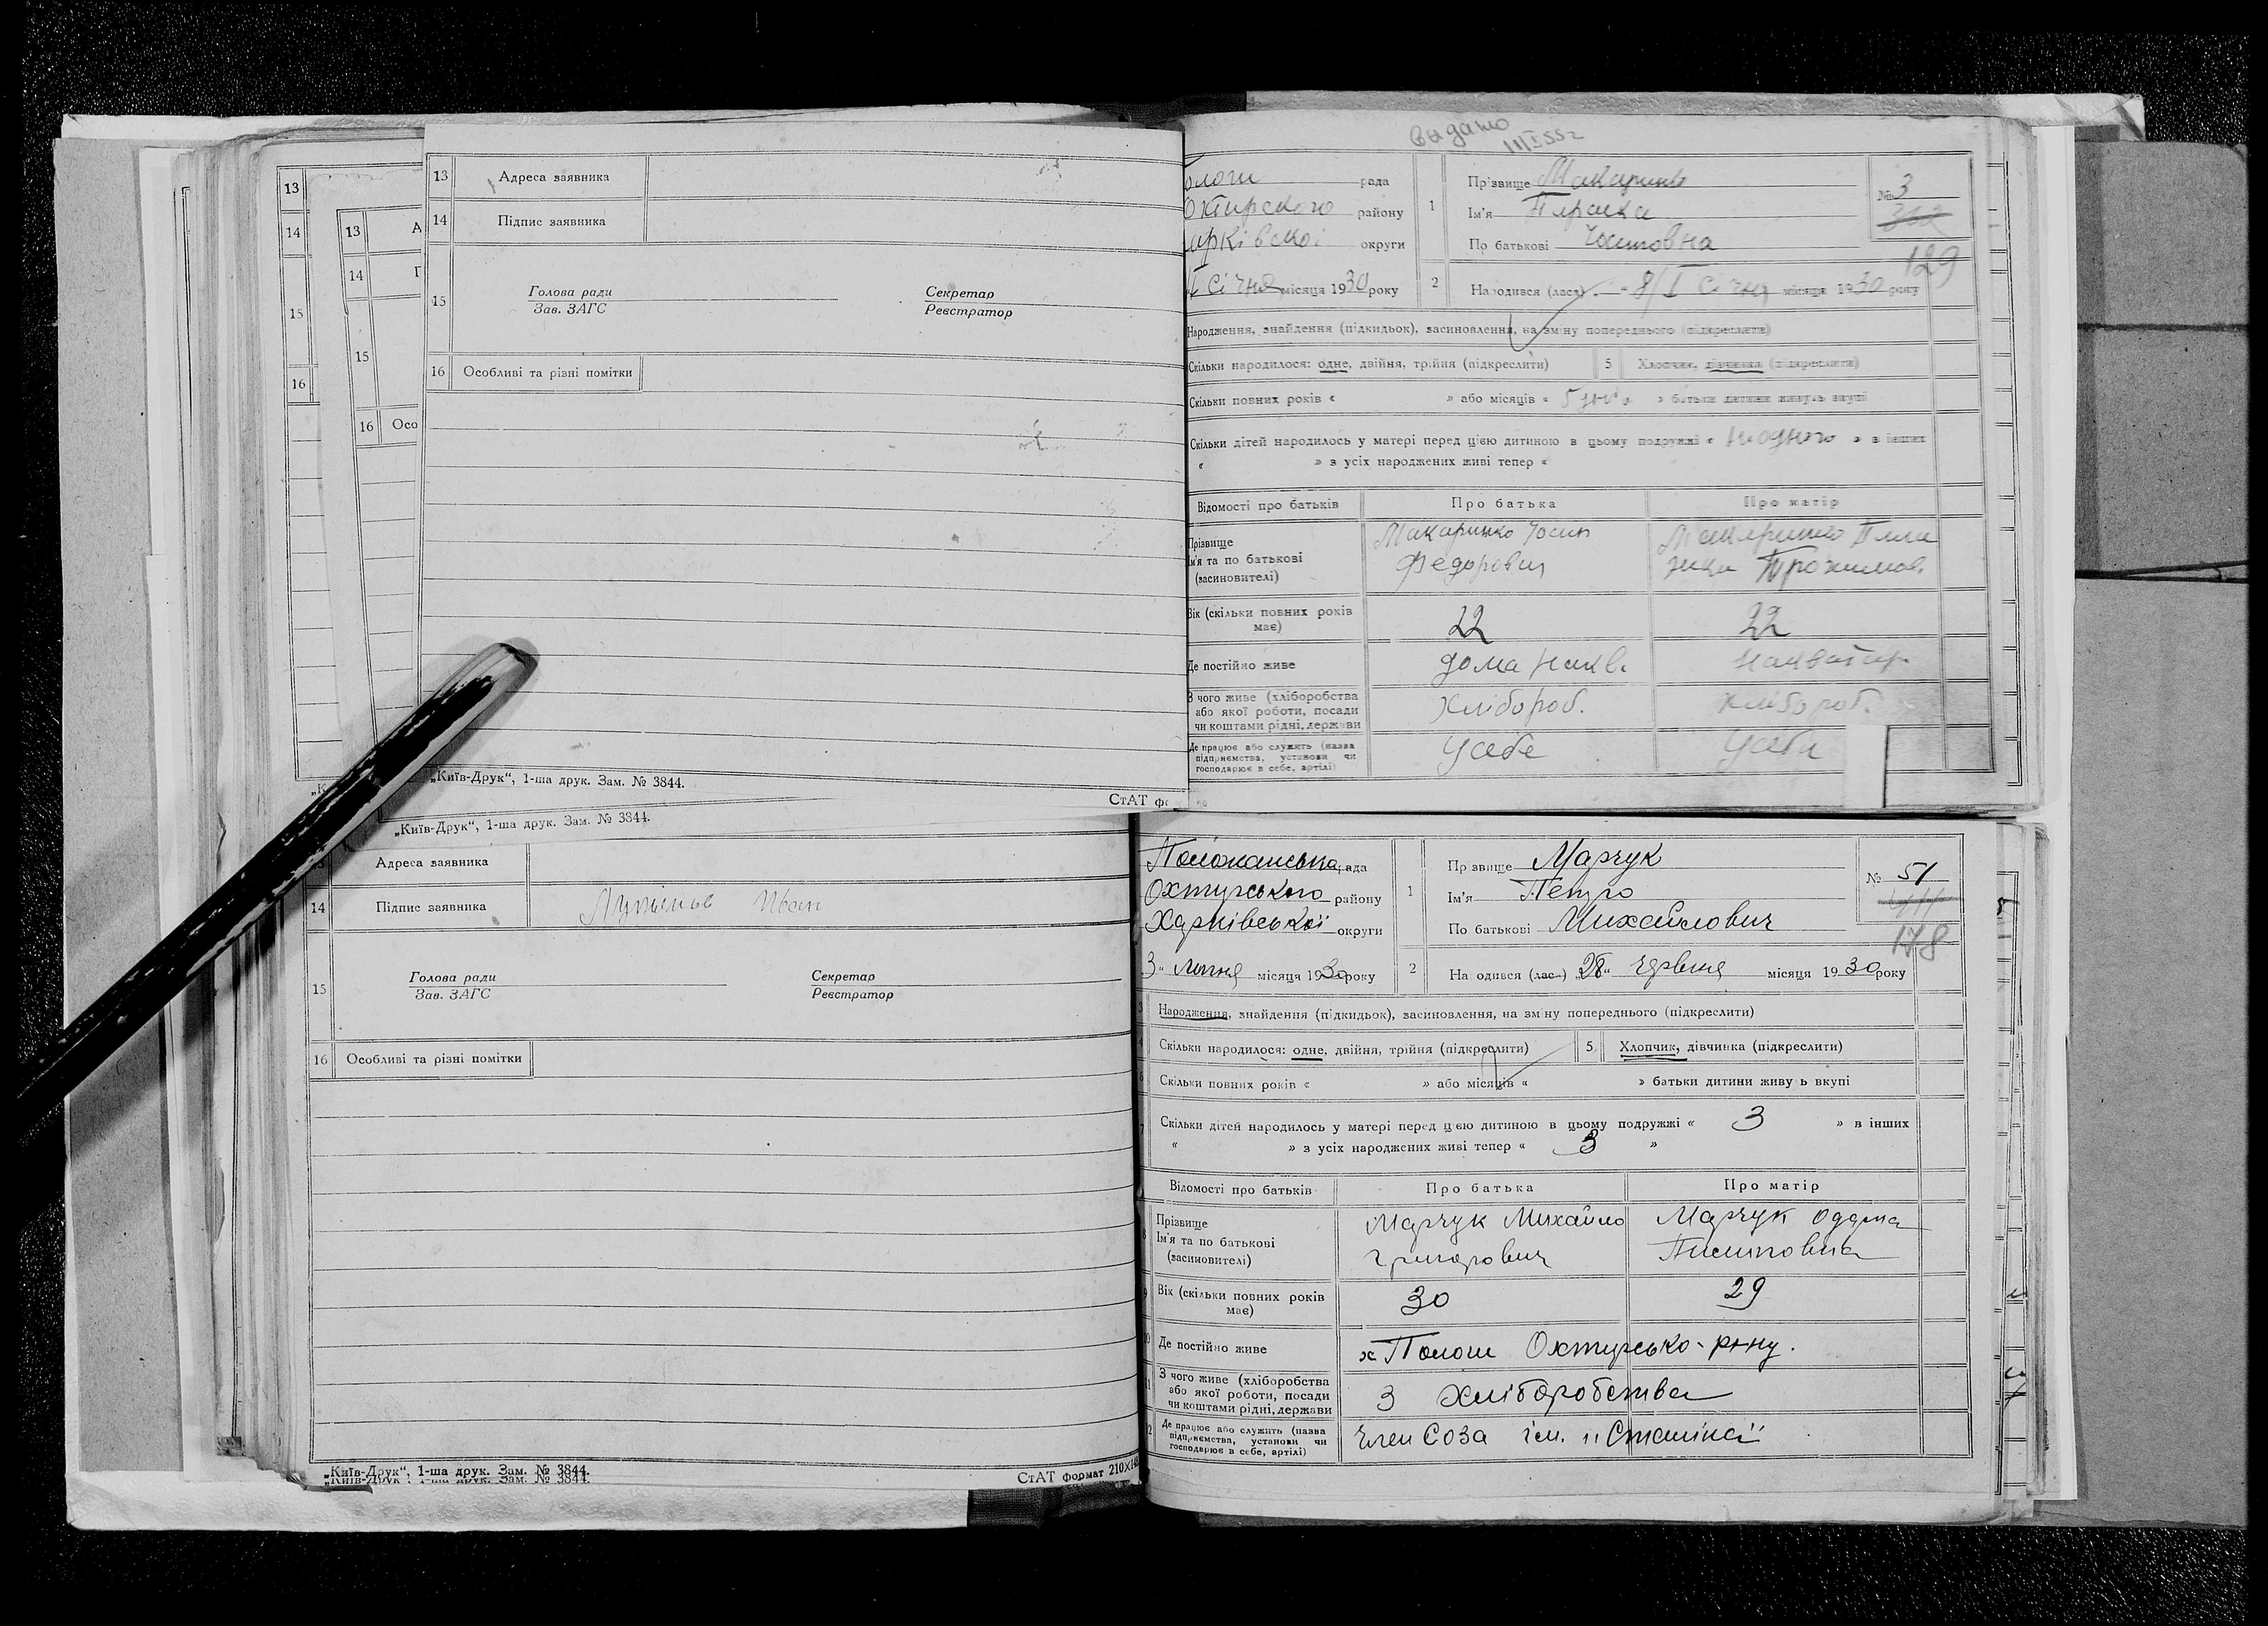 13
14
15
16
13
14
15
16 Осо
13 Адреса заявника
14 Підпис заявника
15 Голова ради
Зав. ЗАГС
Секретар
Реєстратор
16 Особливі та різні помітки
„Київ-Друк“, 1-ша друк. Зам. № 3844.
СтАТ
„Київ-Друк“, 1-ша друк. Зам. № 3844.
видано
рада
району
округи
Січня місяця 1930 року
1 Прізвище Макаринко
Ім'я Параска
По батькові
№ 3
129
2 Народився (лася) „8/I Січня місяця 1930 року
Народження, знайдення (підкидьок), засиновлення, на зміну попереднього (підкреслити)
Скільки народилося: одне, двійня, трійня (підкреслити) 5 Хлопчик, дівчинка (підкреслити)
Скільки повних років « » або місяців « » батьки дитини живуть вкупі
Скільки дітей народилось у матері перед цією дитиною в цьому подружжі « » в інших
« » з усіх народжених живі тепер «
Відомості про батьків Про батька Про матір
Прізвище
Ім'я та по батькові
(засиновителі)
Макаринко Йосип
Федорович
Макаринко
Вік (скільки повних років
має)
22 22
Де постійно живе
дома
З чого живе (хліборобства
або якої роботи, посади
чи коштами рідні, держави
Хлібороб. Хлібороб.
Де працює або служить (назва
підприємства, установи чи
господарює в себе, артілі)
Усебе Усебе
Адреса заявника
14 Підпис заявника Іван
15 Голова ради
Зав. ЗАГС
Секретар
Реєстратор
16 Особливі та різні помітки
„Київ-Друк“, 1-ша друк. Зам. № 3844.
СтАТ формат 210×
рада
Охтирського району
Харківської округи
3 „ липня місяця 1930 року
1 Прізвище Марчук
Ім'я Петро
По батькові Михайлович
№ 51
178
2 Народився (лас.) „28“ червня місяця 1930 року
Народження, знайдення (підкидьок), засиновлення, на зміну попереднього (підкреслити)
Скільки народилося: одне, двійня, трійня (підкреслити) 5 Хлопчик, дівчинка (підкреслити)
Скільки повних років « » або місяців « » батьки дитини живуть вкупі
Скільки дітей народилось у матері перед цією дитиною в цьому подружжі « 3 » в інших
« » з усіх народжених живі тепер « 3 »
Відомості про батьків Про батька Про матір
Прізвище
Ім'я та по батькові
(засиновителі)
Марчук Михайло
Григорович
Марчук
Вік (скільки повних років
має)
30 29
Де постійно живе
х Пологи Охтирсько- р-ну.
З чого живе (хліборобства
або якої роботи, посади
чи коштами рідні, держави
З хліборобства
Де працює або служить (назва
підприємства, установи чи
господарює в себе, артілі)
член Соза ім. „Сталіна“